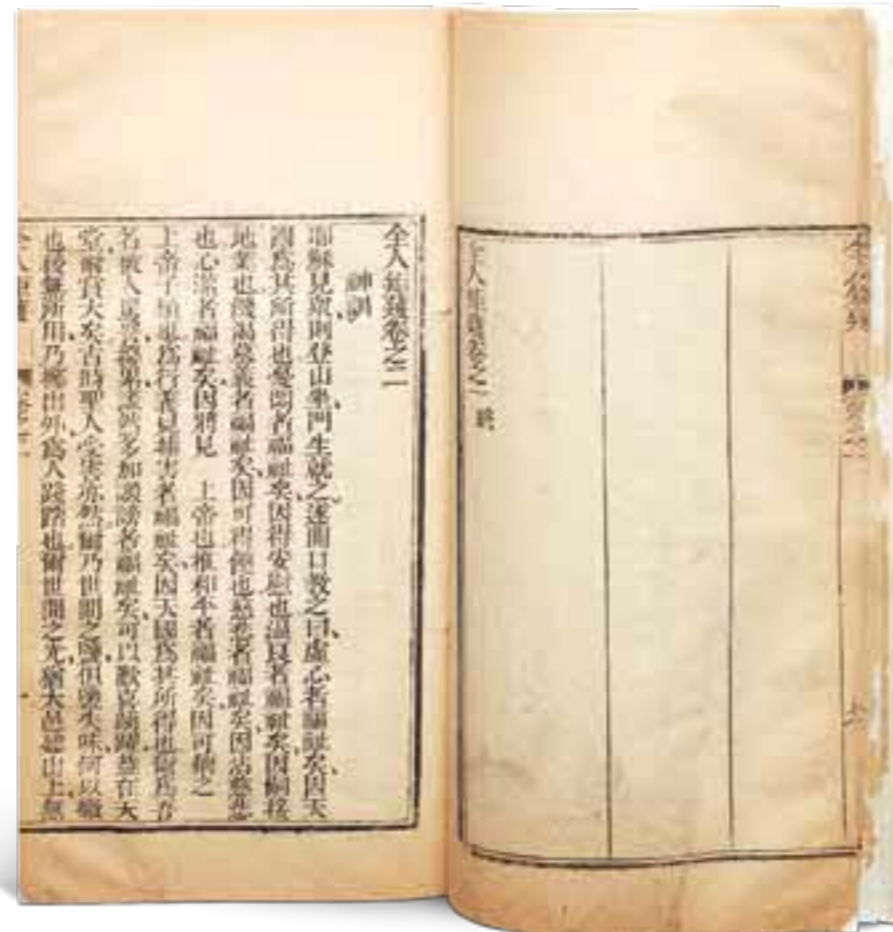 全人矩矱卷之一 終
全人矩矱卷之二
神訓
耶穌見眾則登山坐門生就之遂開口教之曰虛心者福祉矣因天
國爲其所得也憂悶者福祉矣因得安慰也溫良者福祉矣因嗣接
地業也饑渴慕義者福祉矣因可得飽也慈悲者福祉矣因沾慈悲
也心潔者福祉矣因將見 上帝也推和平者福祉矣因可稱之
上帝子 爲行義見捕害者福祉矣因天國爲其所得也爾爲吾
名被人 多加誹謗者福祉矣可以歡喜踴躍蓋在天
堂 賞大矣古時聖人受害亦然爾乃世間之鹽但鹽失味何以
也後無所用乃擲出外爲人踐踏也爾世間之光猶大邑 山上無